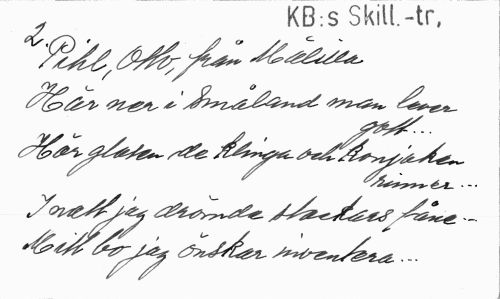 KB:s Skill.-tr,
2.
Pihl, Otto, från Målilla
Här ner i Småland man lever
gott...
Hör glasen de klinga och konjaken
rinner...
I natt jag drömde stackars fåne...
Mitt bo jag önskar inventera...